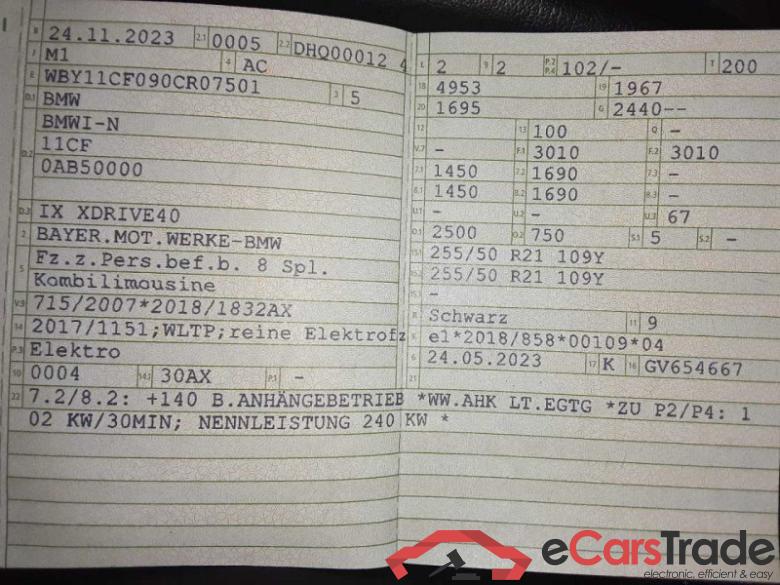 B 24.11.2023 2.1 0005 2.2 DHQ00012 4
J M1 4 AC
E WBY11CF090CR07501 3 5
D.1 BMW
BMWI-N
D.2 11CF
0AB50000
D.3 IX XDRIVE40
2 BAYER.MOT.WERKE-BMW
5 Fz.z.Pers.bef.b. 8 Spl.
Kombilimousine
V.9 715/2007*2018/1832AX
14 2017/1151;WLTP;reine Elektrofz
P.3 Elektro
10 0004 14.1 30AX P.1 -
L 2 9 2 P.2 P.4 102/- T 200
18 4953 19 1967
20 1695 G 2440--
12 13 100 Q -
V.7 - F.1 3010 F.2 3010
7.1 1450 7.2 1690 7.3 -
8.1 1450 8.2 1690 8.3 -
U.1 - U.2 - U.3 67
O.1 2500 O.2 750 S.1 5 S.2 -
15.1 255/50 R21 109Y
15.2 255/50 R21 109Y
15.3 -
R Schwarz 11 9
K e1*2018/858*00109*04
6 24.05.2023 17 K 16 GV654667
21
22 7.2/8.2: +140 B.ANHÄNGEBETRIEB *WW.AHK LT.EGTG *ZU P2/P4: 1
02 KW/30MIN; NENNLEISTUNG 240 KW *
eCarsTrade
electronic, efficient & easy